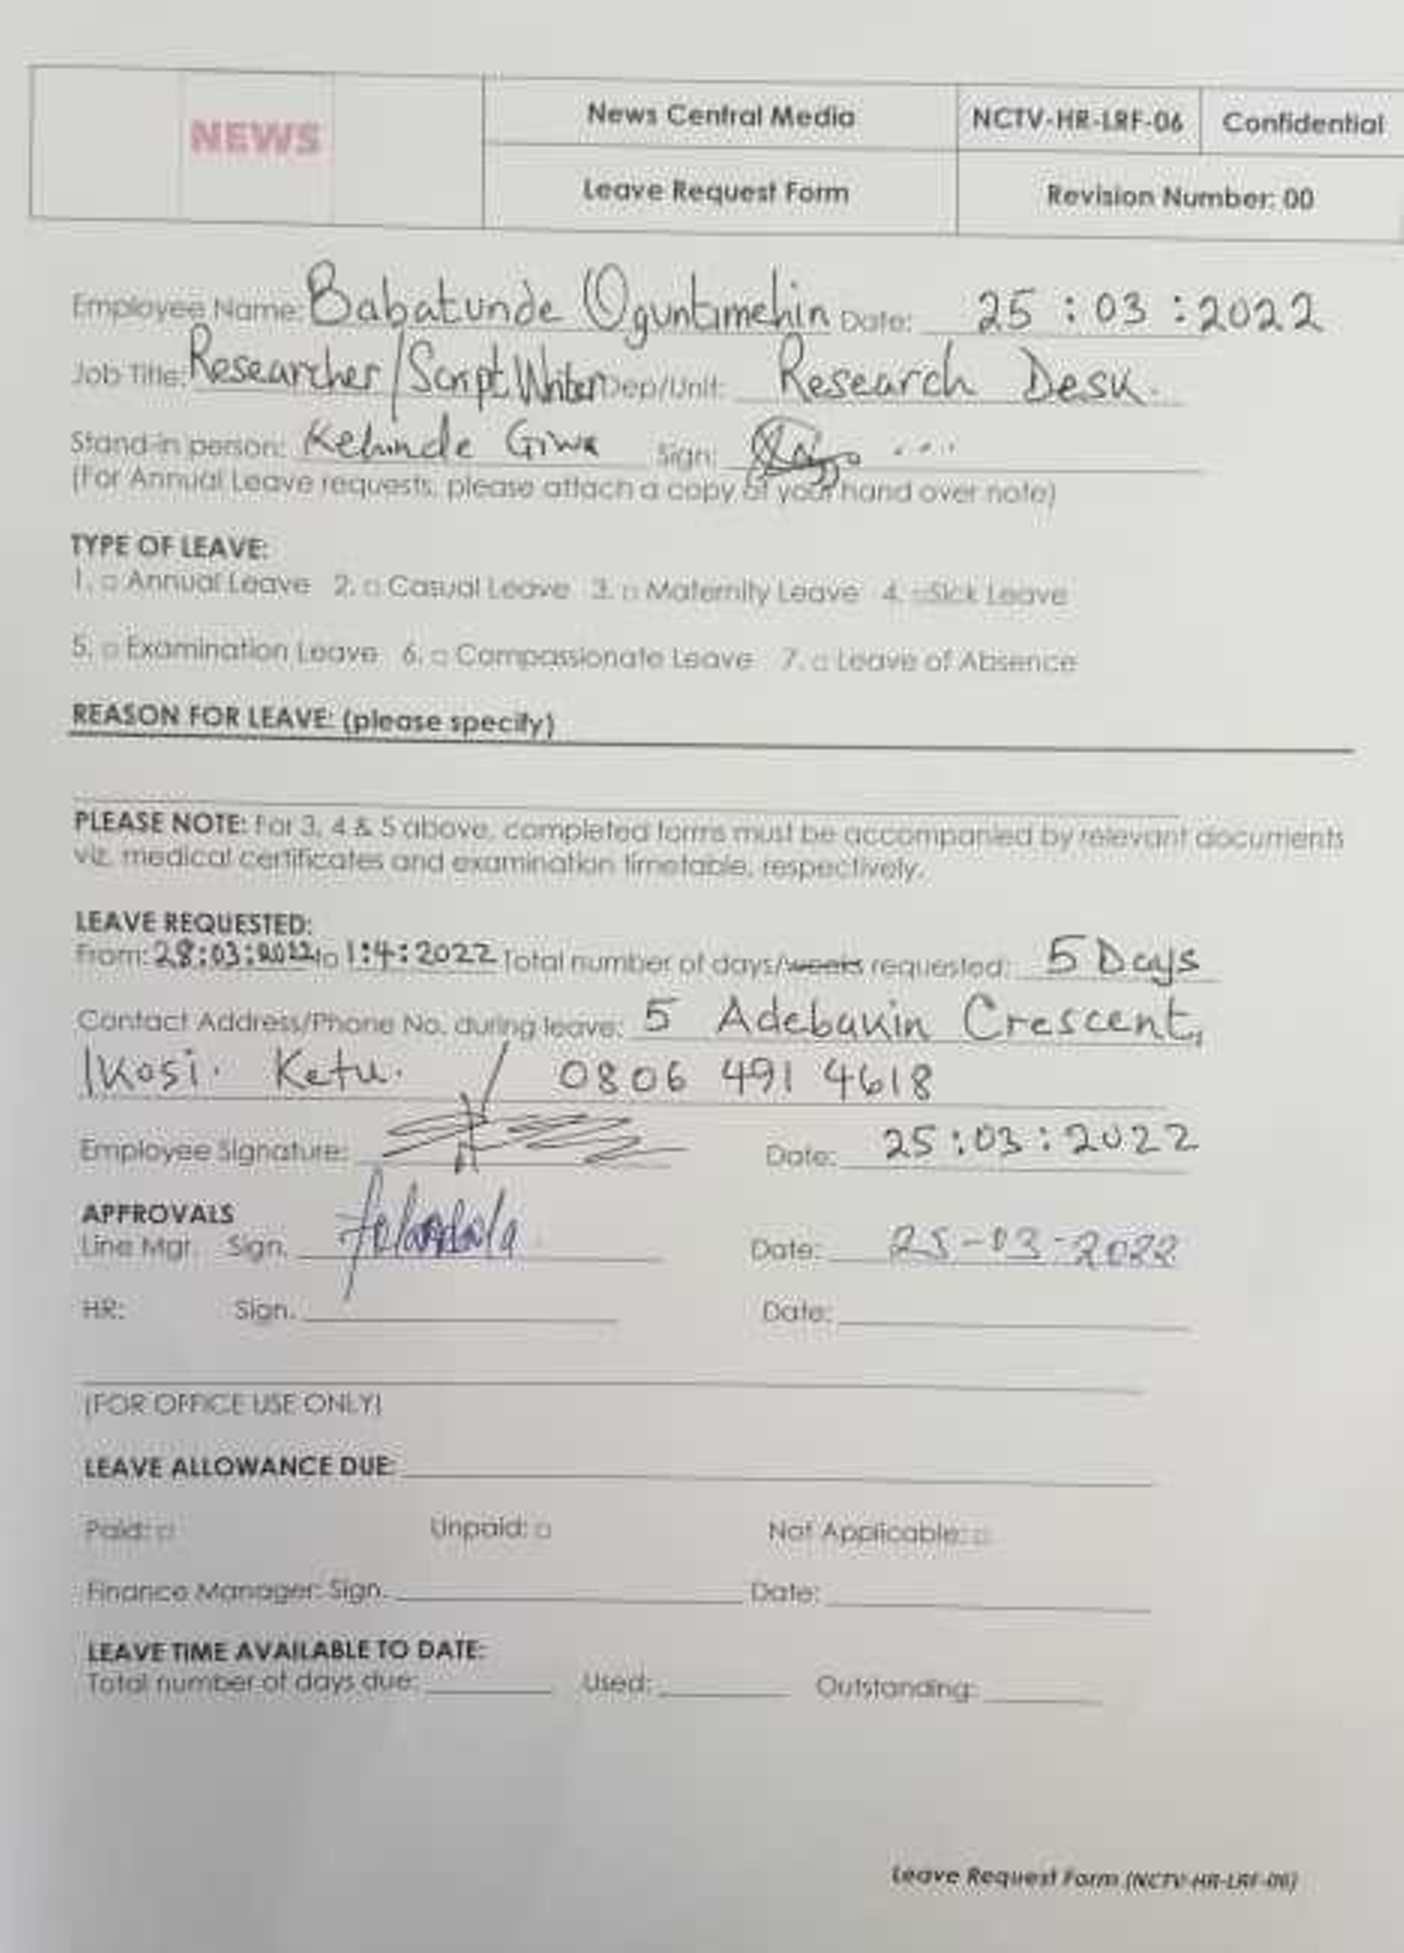 NEWS
News Central Media
NCTV-HR-LRF-06
Confidential
Leave Request Form
Revision Number: 00
Employee Name: Babatunde Oguntimehin Date: 25:03:2022
Job Title: Researcher/Script Writer Dep/Unit: Research Desk.
Stand-in person: Kehinde Giwa Sign:
(For Annual Leave requests, please attach a copy of your hand over note)
TYPE OF LEAVE:
1. □ Annual Leave 2. □ Casual Leave 3. □ Maternity Leave 4. □ Sick Leave
5. □ Examination Leave 6. □ Compassionate Leave 7. □ Leave of Absence
REASON FOR LEAVE: (please specify)
PLEASE NOTE: For 3, 4 & 5 above, completed forms must be accompanied by relevant documents
viz. medical certificates and examination timetable, respectively.
LEAVE REQUESTED:
From: 28:03:2022 to 1:4:2022 Total number of days/weeks requested: 5 Days
Contact Address/Phone No. during leave: 5 Adebakin Crescent,
Ikosi. Ketu. / 0806 491 4618
Employee Signature: Date: 25:03:2022
APPROVALS
Line Mgr. Sign. Date: 25-03-2022
HR: Sign. Date:
(FOR OFFICE USE ONLY)
LEAVE ALLOWANCE DUE:
Paid: □ Unpaid: □ Not Applicable: □
Finance Manager: Sign. Date:
LEAVE TIME AVAILABLE TO DATE:
Total number of days due: Used: Outstanding:
Leave Request Form (NCTV-HR-LRF-06)